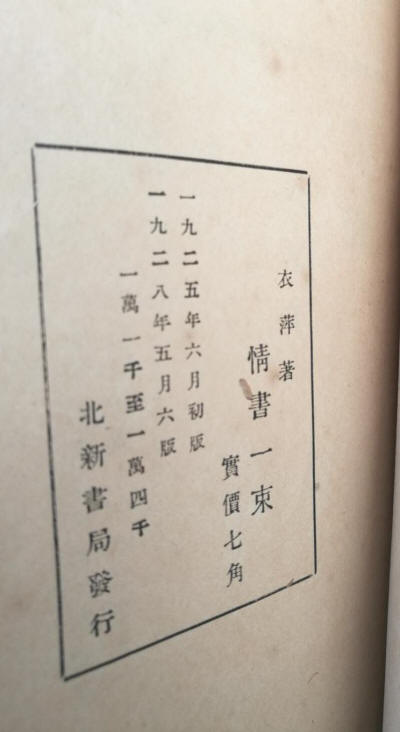 衣萍著
情書一束
實價七角
一九二五年六月初版
一九二八年五月六版
一萬一千至一萬四千
北新書局發行